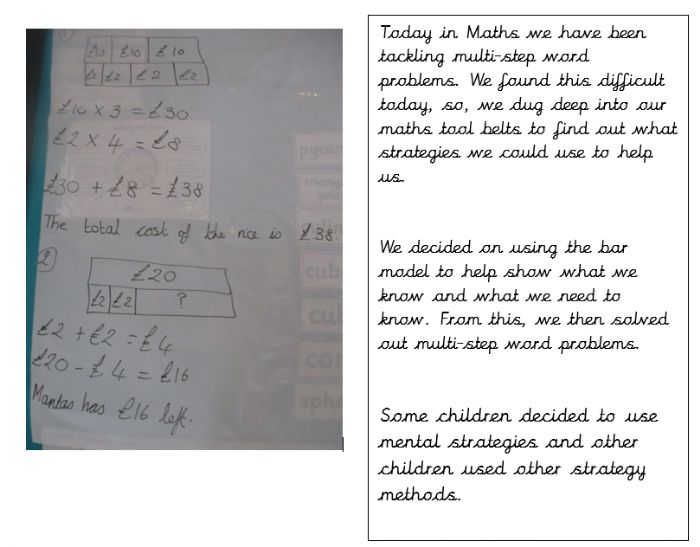 1
£10 £10 £10
£2 £2 £2 £2
£10 x 3 = £30
£2 x 4 = £8
£30 + £8 = £38
The total cost of the rice is £38.
2
£20
£2 £2 ?
£2 + £2 = £4
£20 - £4 = £16
Mantas has £16 left.
cub
Today in Maths we have been
tackling multi-step word
problems. We found this difficult
today, so, we dug deep into our
maths tool belts to find out what
strategies we could use to help
us.
We decided on using the bar
model to help show what we
know and what we need to
know. From this, we then solved
out multi-step word problems.
Some children decided to use
mental strategies and other
children used other strategy
methods.